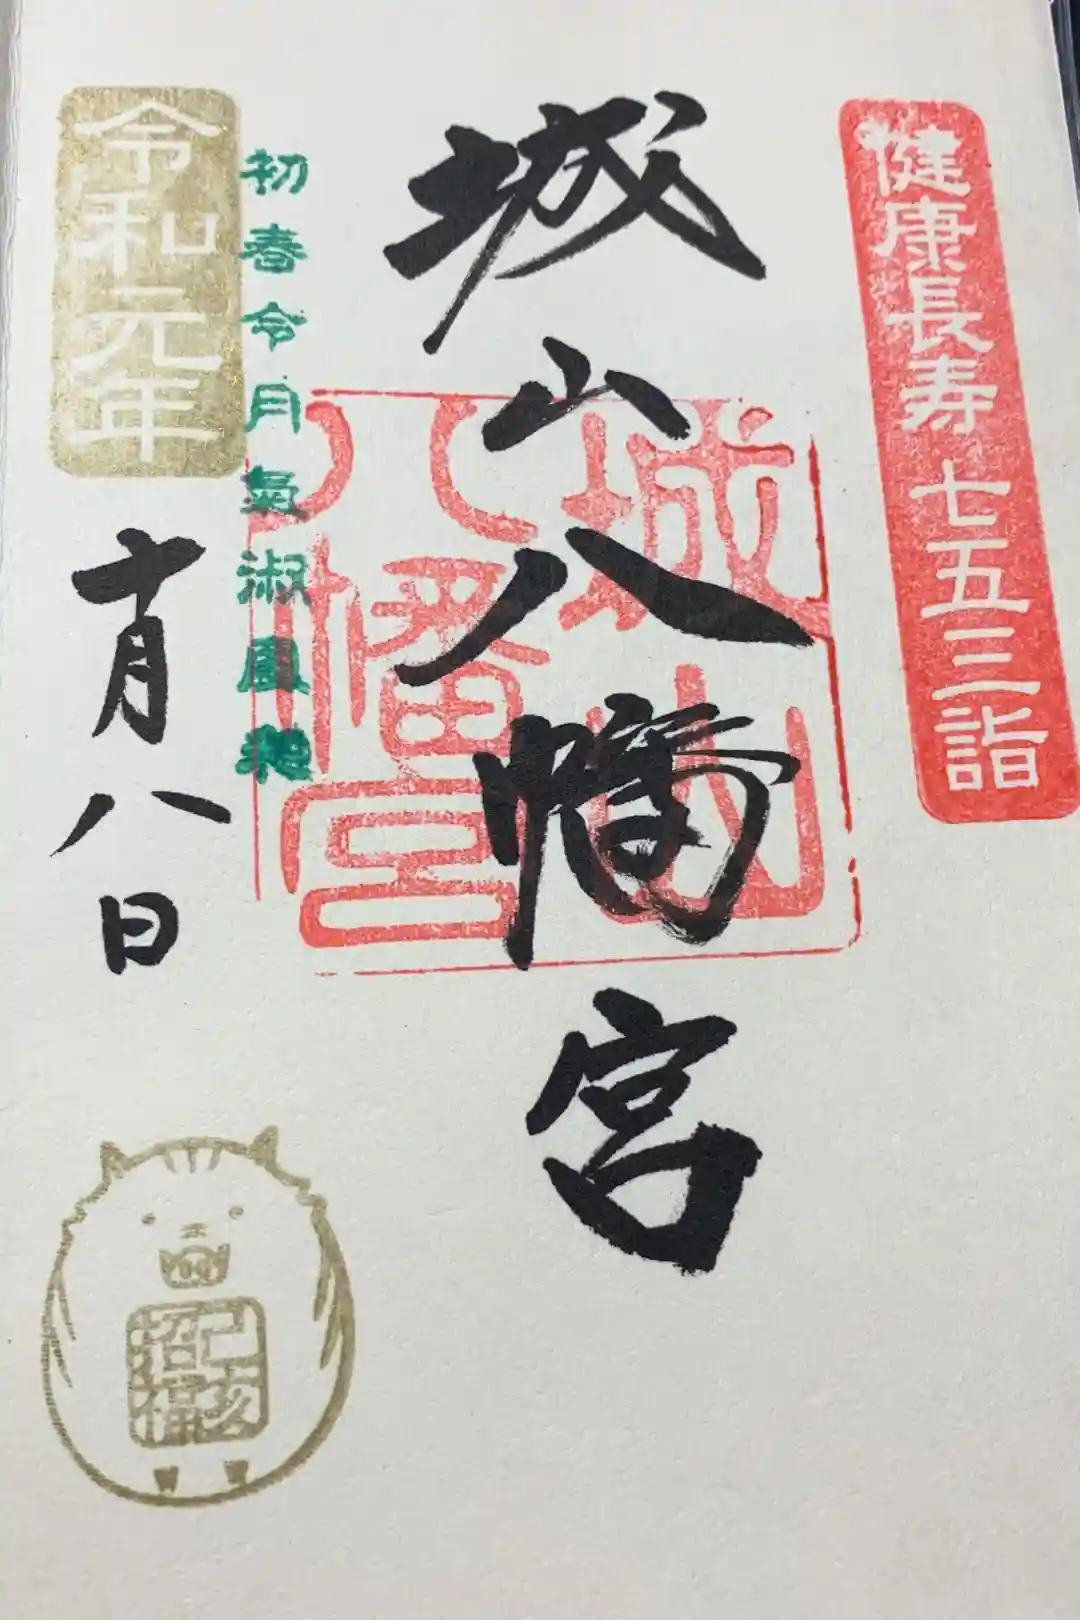 健康長寿 七五三詣
城山八幡宮
城山
八幡宮
初春令月氣淑風
令和元年
十月八日
己亥
招福